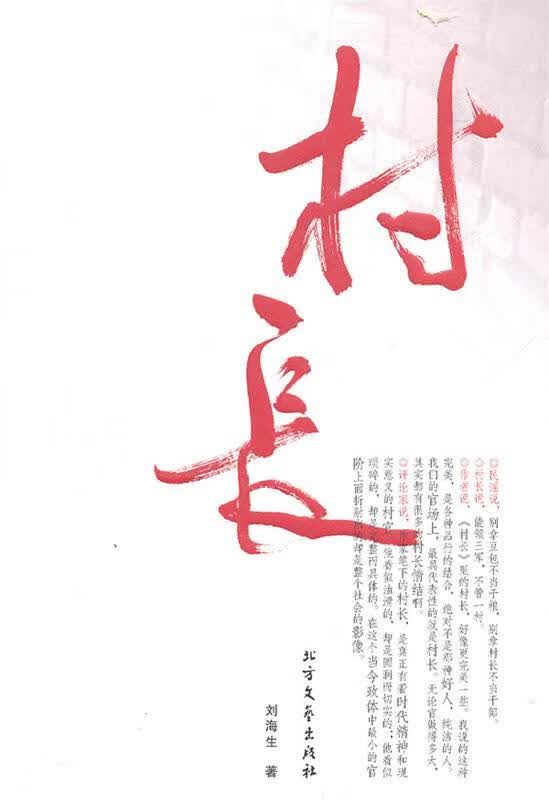 村長
◎民谣说，别拿豆包不当干粮，别拿村长不当干部。
◎村长说，能领三军，不管一村。
◎作者说，《村长》里的村长，好像更完美一些。我说的这种
完美，是各种品行的结合，绝对不是那种好人，纯洁的人。
我们的官场上，最具代表性的就是村长。无论官做得多大，
其实都有很多的村长情结啊。
◎评论家说，作家笔下的村长，是真正有着时代精神和现
实意义的村官。他看似油滑的，却是圆润而切实的；他看似
琐碎的，却是完整而具体的。在这个当今政体中最小的官
阶上面折射出的却是整个社会的影像。
北方文艺出版社
刘海生 著